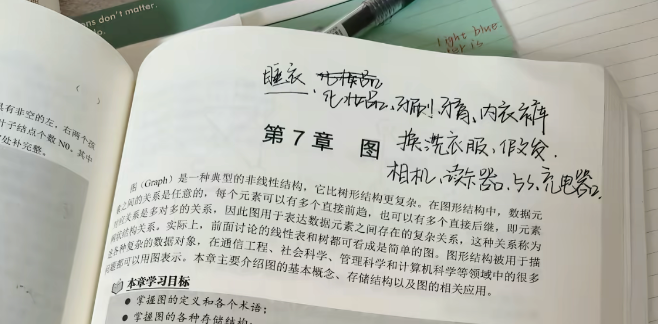 ons don't matter.
light blue.
睡衣、化妆品
化妆品、牙刷牙膏、内衣裤
换洗衣服、假发.
相机、读卡器、充电器.
具有非空的左，右两个孩
叶子结点个数 N0，其中
处补充完整。
第 7 章 图
图（Graph）是一种典型的非线性结构，它比树形结构更复杂。在图形结构中，数据元
素之间的关系是任意的，每个元素可以有多个直接前趋，也可以有多个直接后继，即元素
对应关系是多对多的关系，因此图用于表达数据元素之间存在的复杂关系，这种关系称为
网状结构关系。实际上，前面讨论的线性表和树都可看成是简单的图。图形结构被用于描
述各种复杂的数据对象，在通信工程、社会科学、管理科学和计算机科学等领域中的很多
问题都可以用图表示。本章主要介绍图的基本概念、存储结构以及图的相关应用。
本章学习目标
● 掌握图的定义和各个术语；
● 掌握图的各种存储结构；